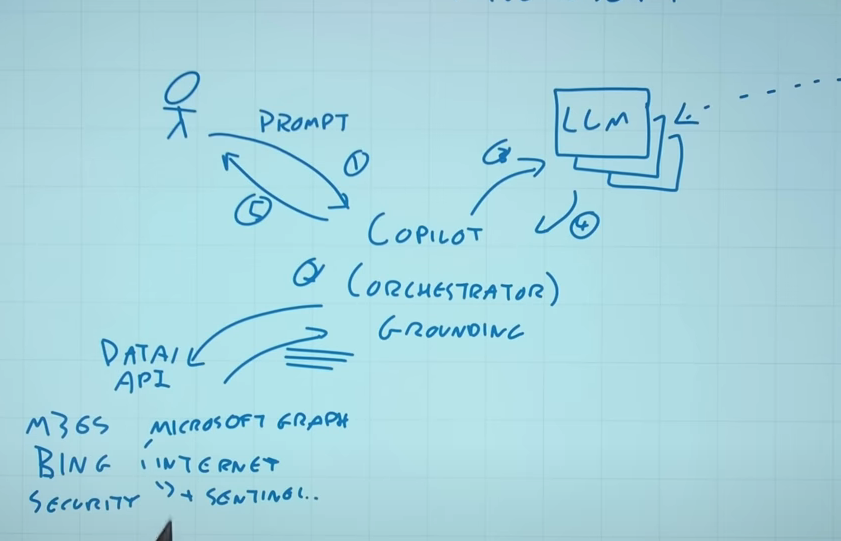 PROMPT
①
⑤
LLM
③
④
COPILOT
②
(ORCHESTRATOR)
GROUNDING
DATA/
API
M365 MICROSOFT GRAPH
BING INTERNET
SECURITY " + SENTINEL..